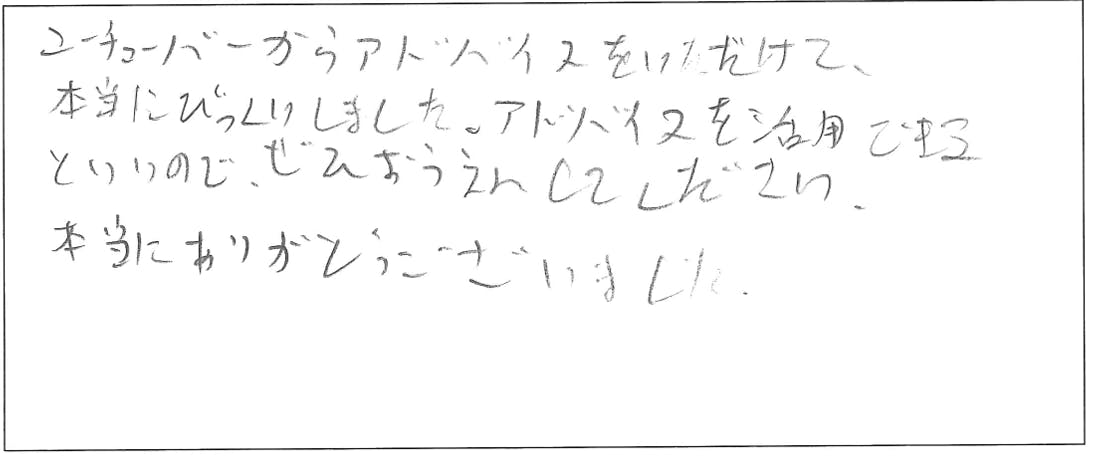 ユーチューバーからアドバイスをいただけて、
本当にびっくりしました。アドバイスを活用できる
といいので、ぜひおうえんしてください。
本当にありがとうございました。